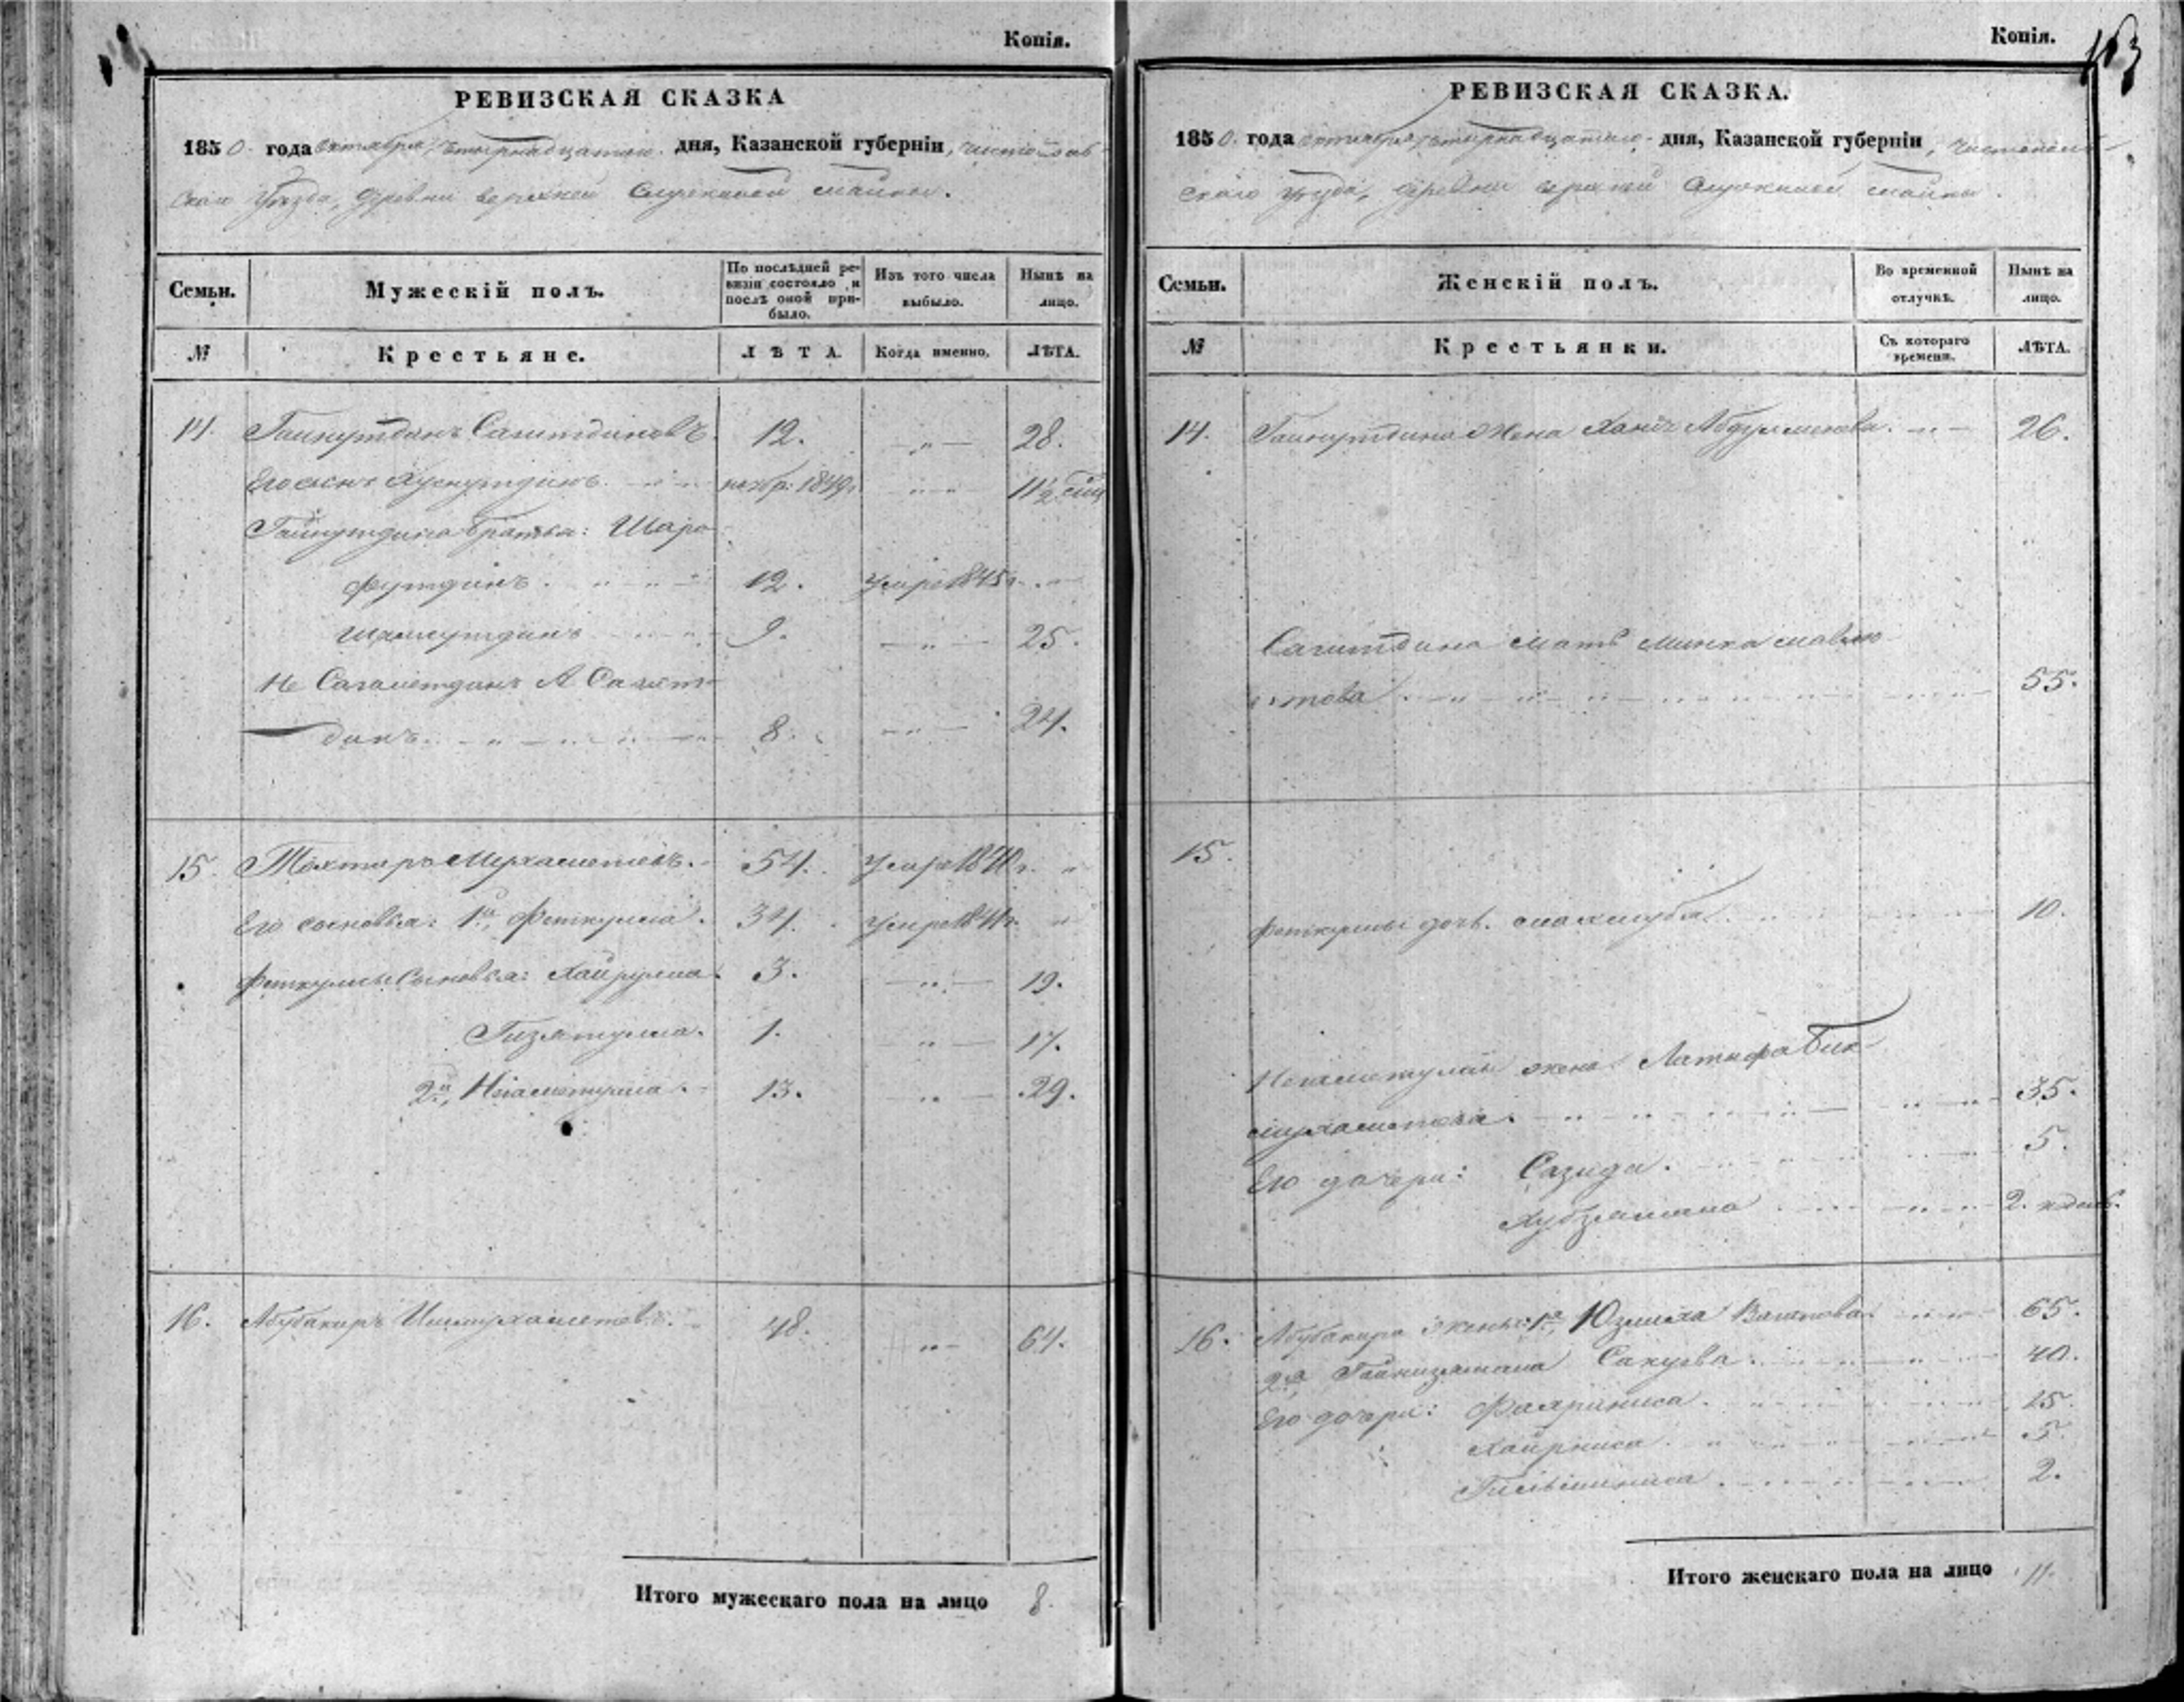 Копія.
РЕВИЗСКАЯ СКАЗКА
1850. года октября четырнадцатаго дня, Казанской губерніи, Чистополь-
скаго Уѣзда, деревни верхней Служилой Майны.
Семьи. Мужескій полъ. По послѣдней ревизіи состояло и послѣ оной прибыло. Изъ того числа выбыло. Нынѣ на лицо.
№ Крестьяне. ЛѢТА. Когда именно. ЛѢТА.
14. Гайнутдинъ Сагитдиновъ. 12. — „ — 28.
Его сынъ Хуснутдинъ нояб: 1849г. — „ — 11½ мѣц
Гайнутдина братья: Шара-
футдинъ. 12. Умре 1845г. „
Шамсутдинъ 9. — „ — 25.
Не Сагаметдинъ А Сагит-
динъ 8. — „ — 24.
15. Тохтаръ Мухаметевъ. 54. Умре 1840г. „
Его сыновья: 1й, Феткулла. 34. Умре 1841г. „
Феткуллы Сыновья: Хайрулла. 3. — „ — 19.
Гизятулла. 1. — „ — 17.
2й, Нигаметулла. 13. — „ — 29.
16. Абубакиръ Ишмухаметевъ. 48. — „ — 64.
Итого мужескаго пола на лицо 8.
Копія.
163
РЕВИЗСКАЯ СКАЗКА.
1850. года октября четырнадцатаго дня, Казанской губерніи, Чистополь-
скаго Уѣзда, деревни верхней Служилой Майны.
Семьи. Женскій полъ. Во временной отлучкѣ. Нынѣ на лицо.
№ Крестьянки. Съ котораго времени. ЛѢТА.
14. Гайнутдина Жена 26.
Сагитдина мать
55.
15.
Феткуллы дочь. 10.
Нигаметуллы жена Латифа Бик-
мухаметева. 35.
Его дочери: Сазида. 5.
Хубзямала 2.
16. Абубакира жены: 1я, Вагапова 65.
2я Гайнизямала 40.
Его дочери: Фахриниса. 15.
Хайрниса. 5.
2.
Итого женскаго пола на лицо 11.